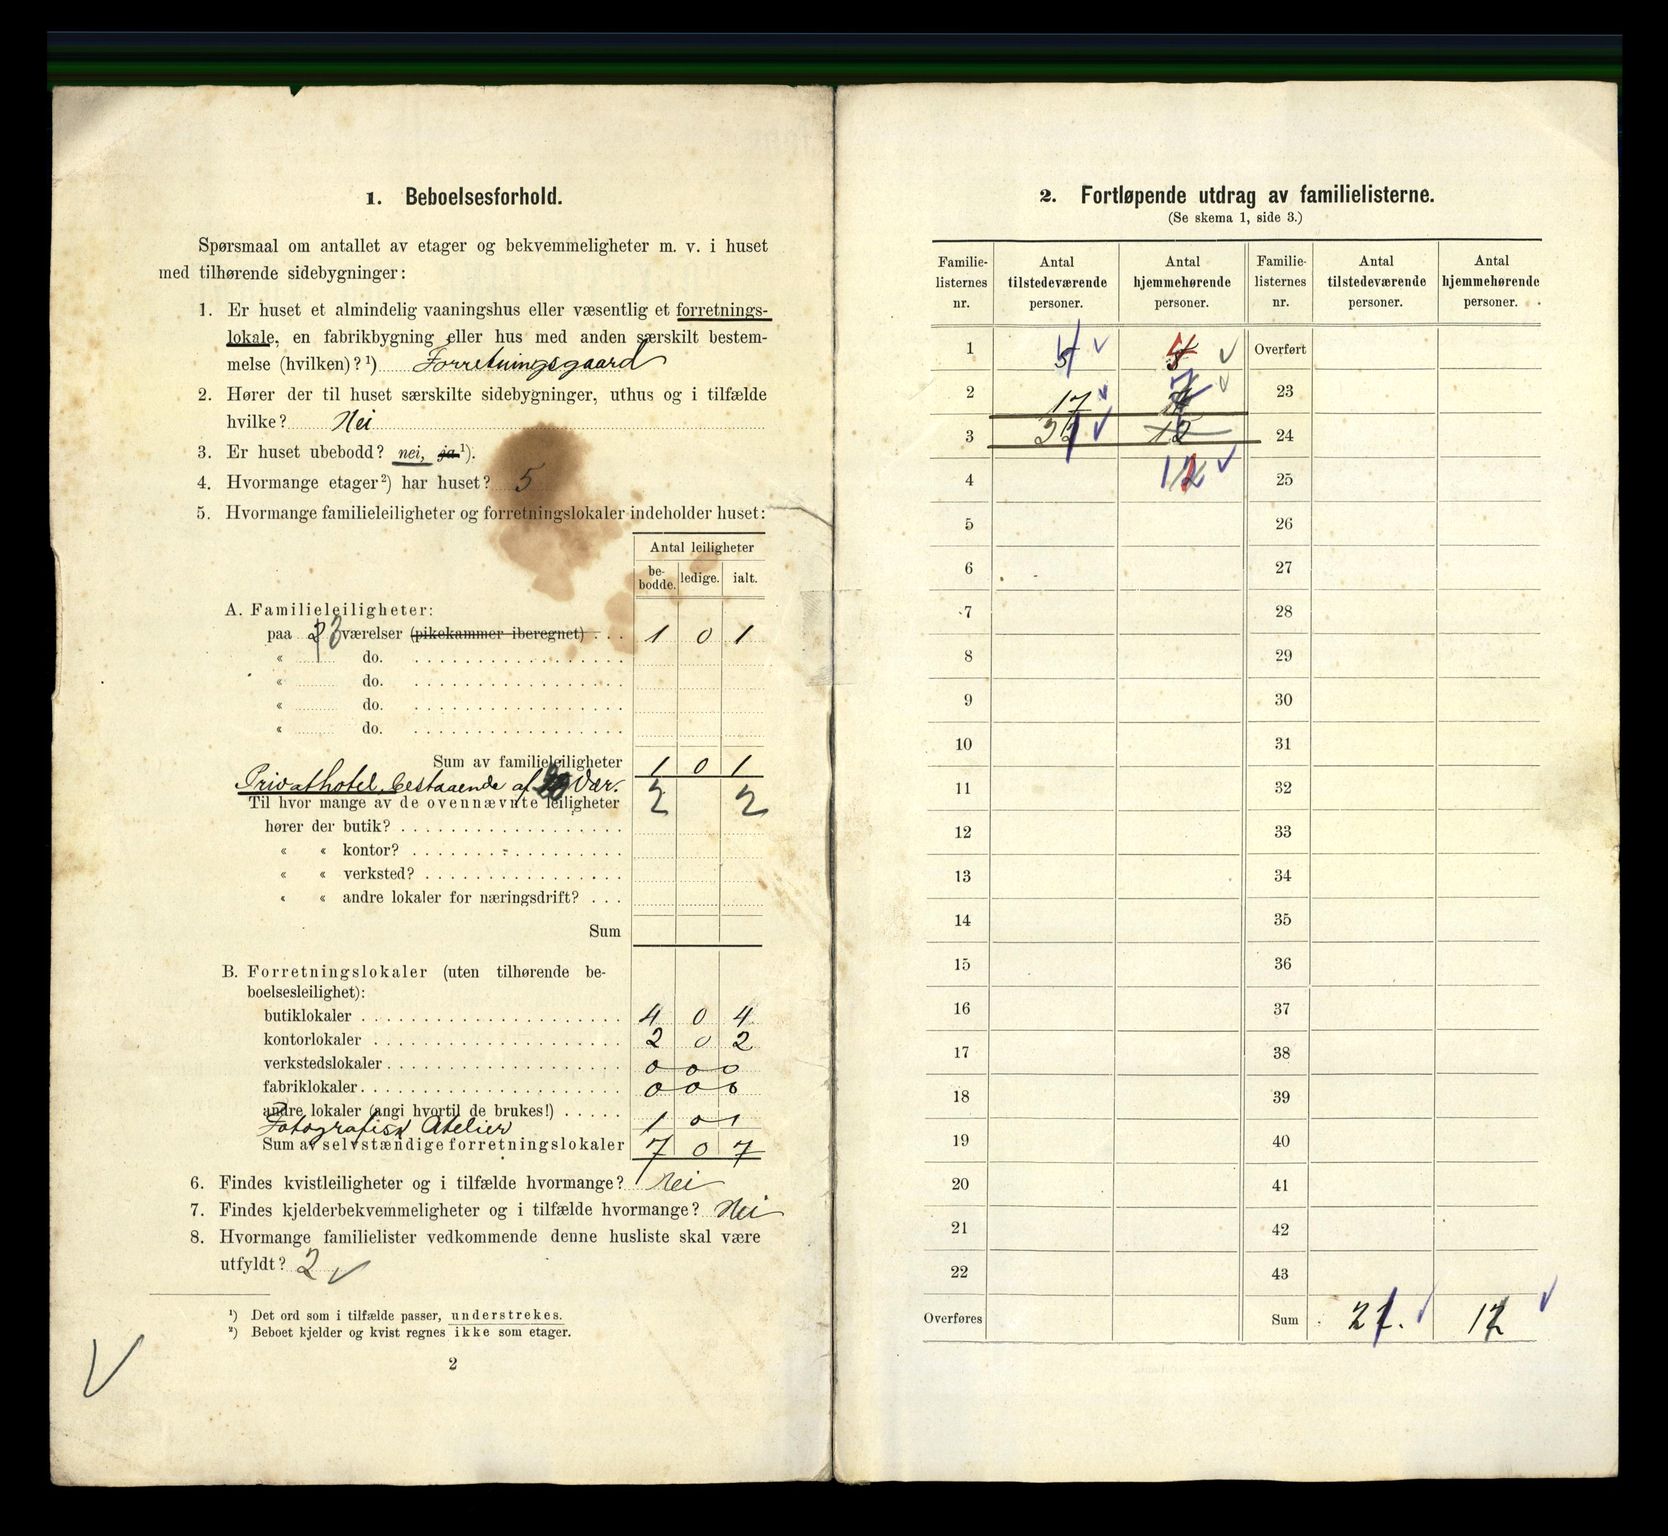 1. Beboelsesforhold.
Spørsmaal om antallet av etager og bekvemmeligheter m. v. i huset
med tilhørende sidebygninger:
1. Er huset et almindelig vaaningshus eller væsentlig et forretnings-
lokale, en fabrikbygning eller hus med anden særskilt bestem-
melse (hvilken)? ¹) Forretningsgaard
2. Hører der til huset særskilte sidebygninger, uthus og i tilfælde
hvilke? Nei
3. Er huset ubebodd? nei, ja ¹).
4. Hvormange etager ²) har huset? 5
5. Hvormange familieleiligheter og forretningslokaler indeholder huset:
Antal leiligheter
be-
bodde. ledige. ialt.
A. Familieleiligheter:
paa 3 værelser (pikekammer iberegnet) . . . 1 0 1
« do.
« do.
« do.
« do.
Sum av familieleiligheter 1 0 1
Privathotel, bestaaende af Vær. 2 2
Til hvor mange av de ovennævnte leiligheter
hører der butik?
« « kontor?
« « verksted?
« « andre lokaler for næringsdrift? . . .
Sum
B. Forretningslokaler (uten tilhørende be-
boelsesleilighet):
butiklokaler 4 0 4
kontorlokaler 2 0 2
verkstedslokaler 0 0 0
fabriklokaler 0 0 0
andre lokaler (angi hvortil de brukes!)
Fotografisk Atelier 1 0 1
Sum av selvstændige forretningslokaler 7 0 7
6. Findes kvistleiligheter og i tilfælde hvormange? Nei
7. Findes kjelderbekvemmeligheter og i tilfælde hvormange? Nei
8. Hvormange familielister vedkommende denne husliste skal være
utfyldt? 2 ✓
¹) Det ord som i tilfælde passer, understrekes.
²) Beboet kjelder og kvist regnes ikke som etager.
2
2. Fortløpende utdrag av familielisterne.
(Se skema 1, side 3.)
Familie- Antal Antal Familie- Antal Antal
listernes tilstedeværende hjemmehørende listernes tilstedeværende hjemmehørende
nr. personer. personer. nr. personer. personer.
1 ✓ ✓ Overført
2 17 ✓ ✓ 23
3 ✓ 12 24
4 12 ✓ 25
5 26
6 27
7 28
8 29
9 30
10 31
11 32
12 33
13 34
14 35
15 36
16 37
17 38
18 39
19 40
20 41
21 42
22 43
Overføres Sum 21. ✓ 12 ✓